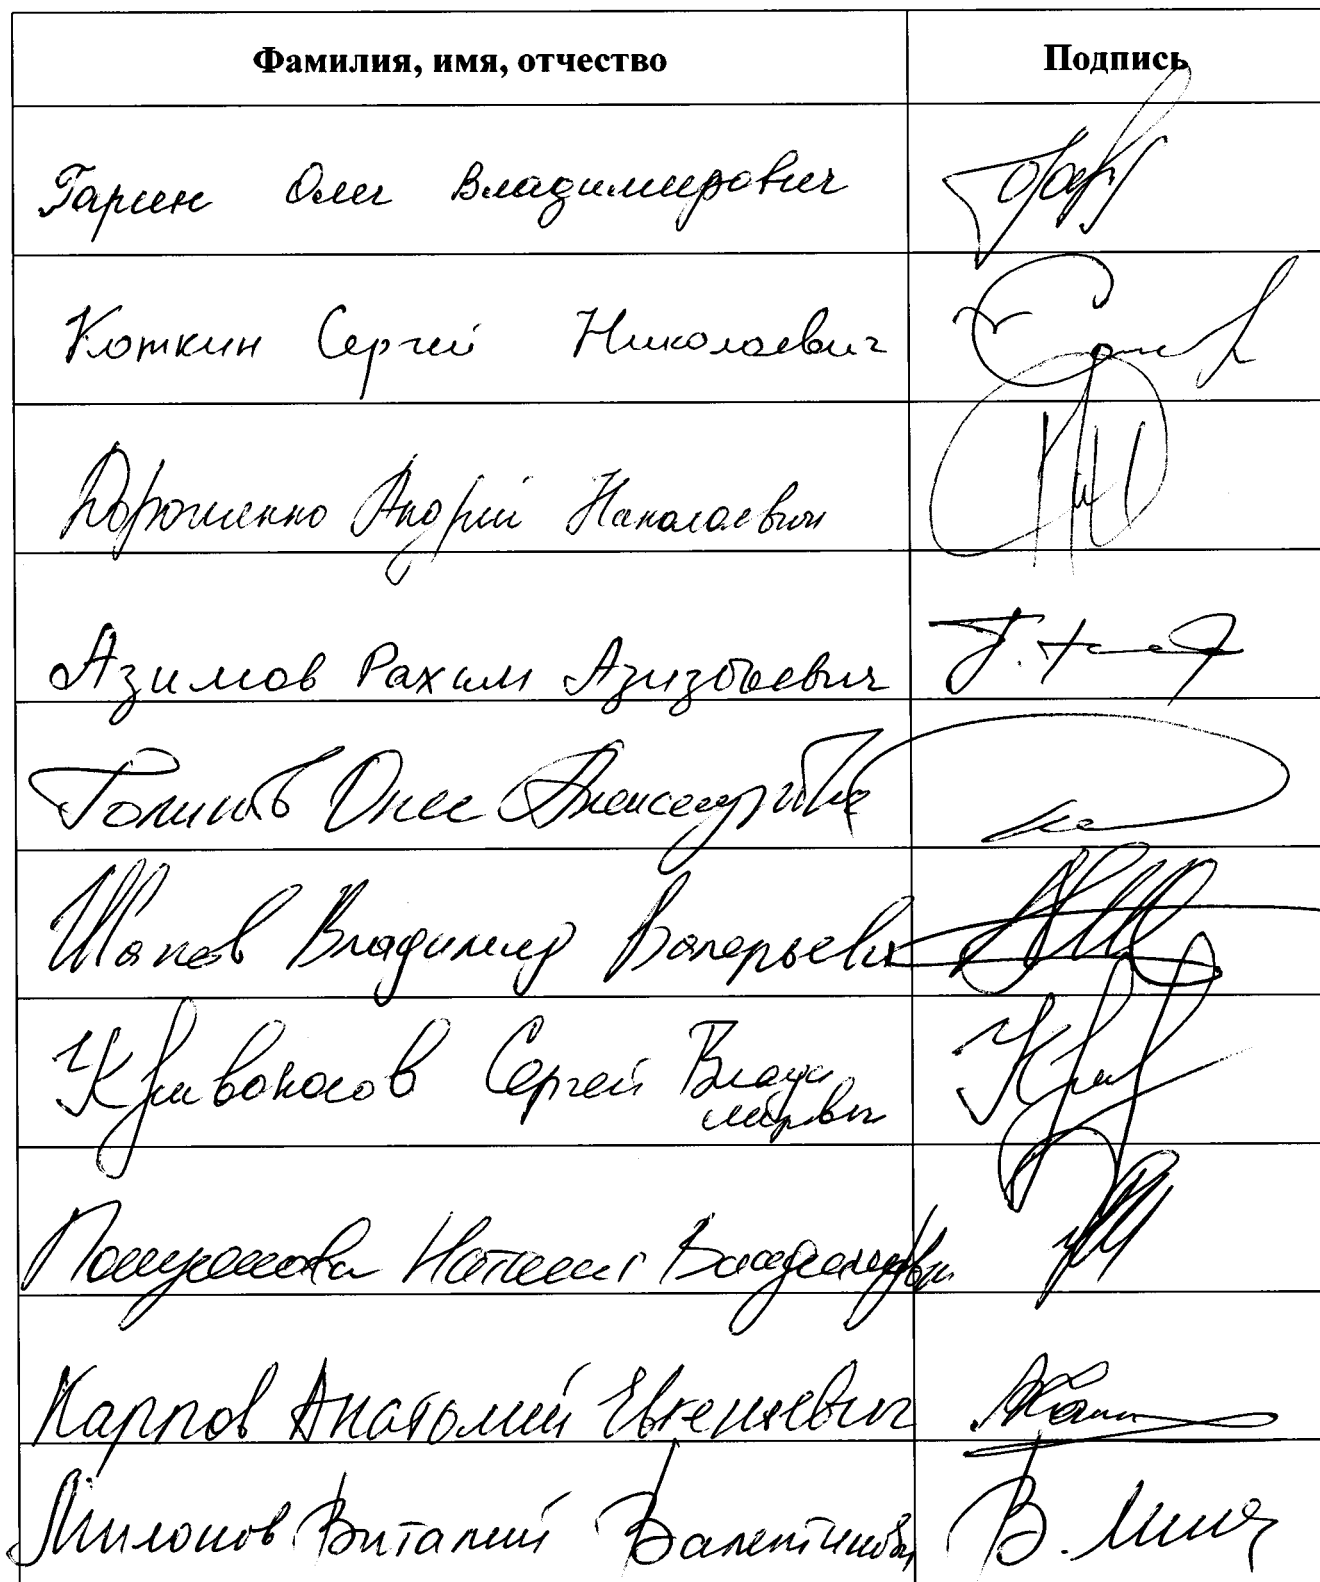 Фамилия, имя, отчество Подпись
Гарин Олег Владимирович
Коткин Сергей Николаевич
Дорошенко Андрей Николаевич
Азимов Рахим Азизбоевич
Олег Александрович
Шапов Владимир Валерьевич
Кривоносов Сергей Влади
мирович
Наталия Владимировна
Карпов Анатолий Евгеньевич
Милонов Виталий Валентинович
В. Мил